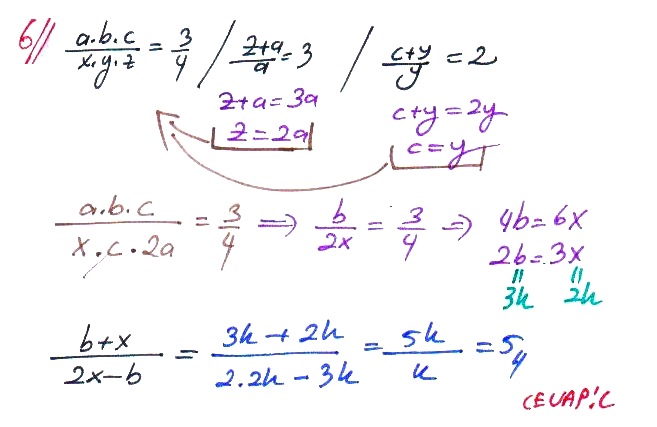 6// a.b.c / x.y.z = 3/4 / z+a / a = 3 / c+y / y = 2
z+a = 3a c+y = 2y
z = 2a c = y
a.b.c / x.c.2a = 3/4 ⇒ b / 2x = 3/4 ⇒ 4b = 6x
2b = 3x
= =
3k 2k
b+x / 2x-b = 3k + 2k / 2.2k - 3k = 5k / k = 5//
CEVAP: C